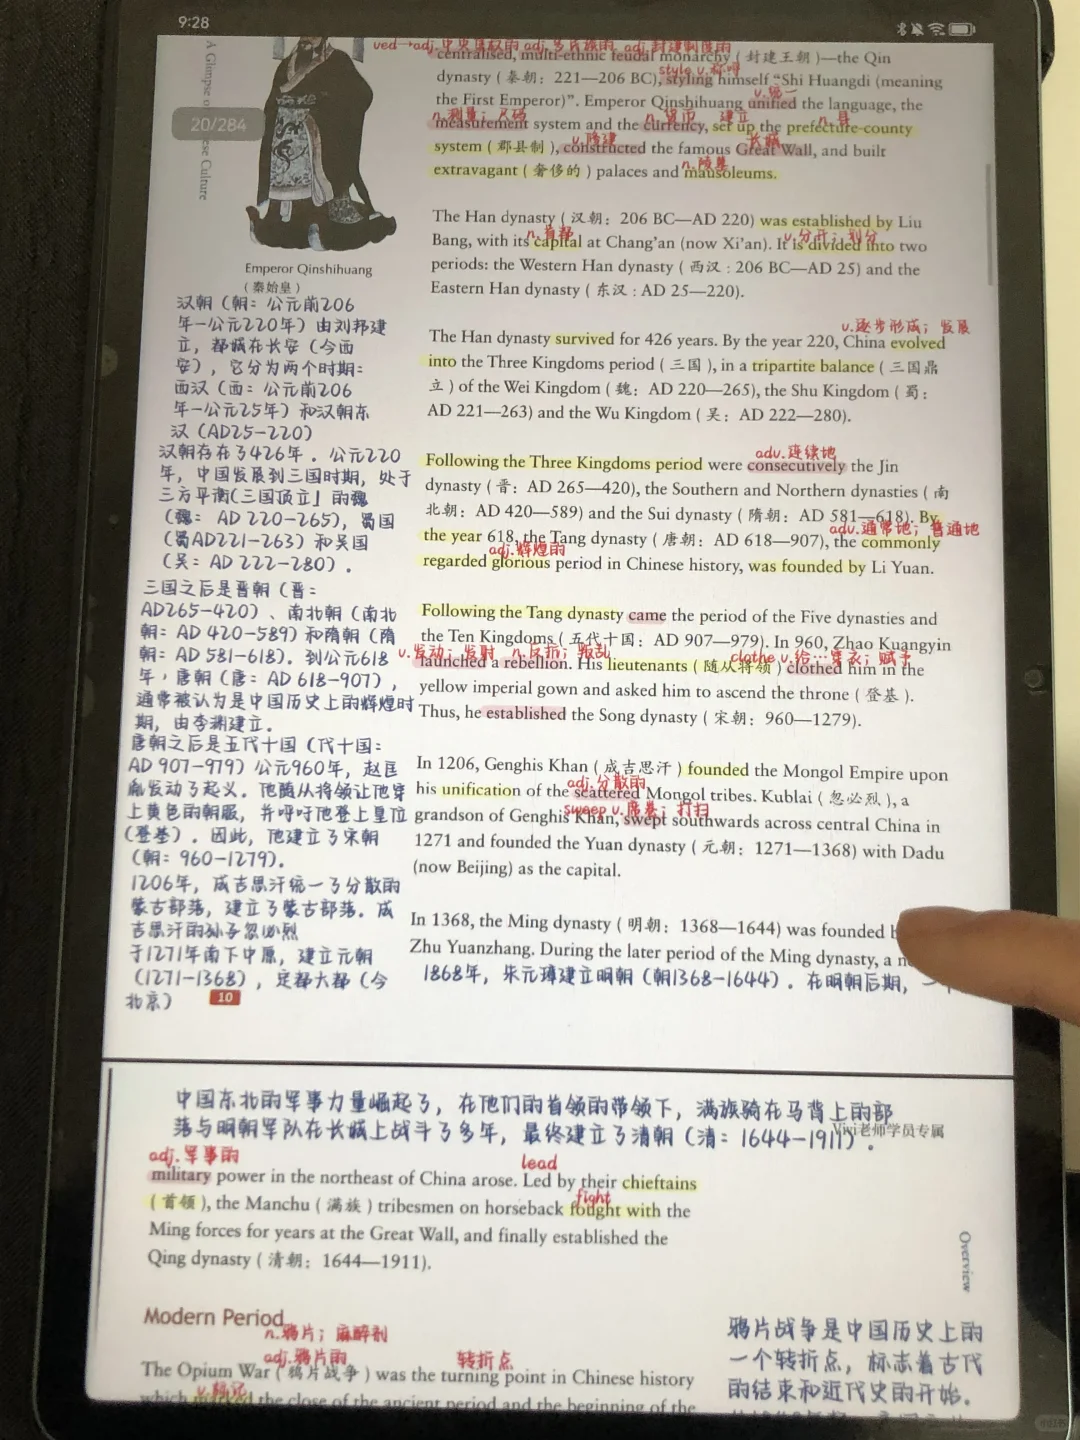 9:28
20/284
Emperor Qinshihuang
（秦始皇）
ved→adj.中央集权的 adj.多民族的 adj.封建制度的
centralised, multi-ethnic feudal monarchy（封建王朝）—the Qin
style v.称呼
dynasty（秦朝：221—206 BC), styling himself “Shi Huangdi (meaning
v.统一
the First Emperor)”. Emperor Qinshihuang unified the language, the
n.测量；尺码 n.货币 建立 n.县
measurement system and the currency, set up the prefecture-county
v.修建 长城
system（郡县制）, constructed the famous Great Wall, and built
n.陵墓
extravagant（奢侈的）palaces and mausoleums.
The Han dynasty（汉朝：206 BC—AD 220) was established by Liu
n.首都 v.分开；划分
Bang, with its capital at Chang’an (now Xi’an). It is divided into two
periods: the Western Han dynasty（西汉：206 BC—AD 25) and the
Eastern Han dynasty（东汉：AD 25—220).
v.逐步形成；发展
The Han dynasty survived for 426 years. By the year 220, China evolved
into the Three Kingdoms period（三国）, in a tripartite balance（三国鼎
立）of the Wei Kingdom（魏：AD 220—265), the Shu Kingdom（蜀：
AD 221—263) and the Wu Kingdom（吴：AD 222—280).
adv.连续地
Following the Three Kingdoms period were consecutively the Jin
dynasty（晋：AD 265—420), the Southern and Northern dynasties（南
北朝：AD 420—589) and the Sui dynasty（隋朝：AD 581—618). By
adv.通常地；普通地
the year 618, the Tang dynasty（唐朝：AD 618—907), the commonly
adj.辉煌的
regarded glorious period in Chinese history, was founded by Li Yuan.
Following the Tang dynasty came the period of the Five dynasties and
the Ten Kingdoms（五代十国：AD 907—979). In 960, Zhao Kuangyin
v.发动；发射 n.反抗；叛乱 clothe v.给…穿衣；赋予
launched a rebellion. His lieutenants（随从将领）clothed him in the
yellow imperial gown and asked him to ascend the throne（登基）.
Thus, he established the Song dynasty（宋朝：960—1279).
In 1206, Genghis Khan（成吉思汗）founded the Mongol Empire upon
adj.分散的
his unification of the scattered Mongol tribes. Kublai（忽必烈）, a
sweep v.席卷；打扫
grandson of Genghis Khan, swept southwards across central China in
1271 and founded the Yuan dynasty（元朝：1271—1368) with Dadu
(now Beijing) as the capital.
In 1368, the Ming dynasty（明朝：1368—1644) was founded
Zhu Yuanzhang. During the later period of the Ming dynasty, a
1868年，朱元璋建立明朝（朝1368-1644）．在明朝后期，一
汉朝（朝：公元前206
年-公元220年）由刘邦建
立，都城在长安（今西
安），它分为两个时期：
西汉（西：公元前206
年-公元25年）和汉朝东
汉（AD25-220）
汉朝存在了426年．公元220
年，中国发展到三国时期，处于
三方平衡(三国顶立」的魏
（魏：AD 220-265），蜀国
（蜀AD221-263）和吴国
（吴：AD 222-280）．
三国之后是晋朝（晋：
AD265-420）、南北朝（南北
朝：AD 420-589）和隋朝（隋
朝：AD 581-618）．到公元618
年，唐朝（唐：AD 618-907），
通常被认为是中国历史上的辉煌时
期，由李渊建立．
唐朝之后是五代十国（代十国：
AD 907-979）公元960年，赵匡
胤发动了起义．他随从将领让他穿
上黄色的朝服，并呼吁他登上皇位
（登基）．因此，他建立了宋朝
（朝：960-1279）．
1206年，成吉思汗统一了分散的
蒙古部落，建立了蒙古部落．成
吉思汗的孙子忽必烈
于1271年南下中原，建立元朝
（1271-1368），定都大都（今
北京）
10
中国东北的军事力量崛起了，在他们的首领的带领下，满族骑在马背上的部
落与明朝军队在长城上战斗了多年，最终建立了清朝（清：1644-1911）．
Vivi老师学员专属
adj.军事的 lead
military power in the northeast of China arose. Led by their chieftains
fight
（首领）, the Manchu（满族）tribesmen on horseback fought with the
Ming forces for years at the Great Wall, and finally established the
Qing dynasty（清朝：1644—1911).
Overview
Modern Period
n.鸦片；麻醉剂
adj.鸦片的 转折点
The Opium War（鸦片战争）was the turning point in Chinese history
v.标记
which marked the close of the ancient period and the beginning of the
鸦片战争是中国历史上的
一个转折点，标志着古代
的结束和近代史的开始．